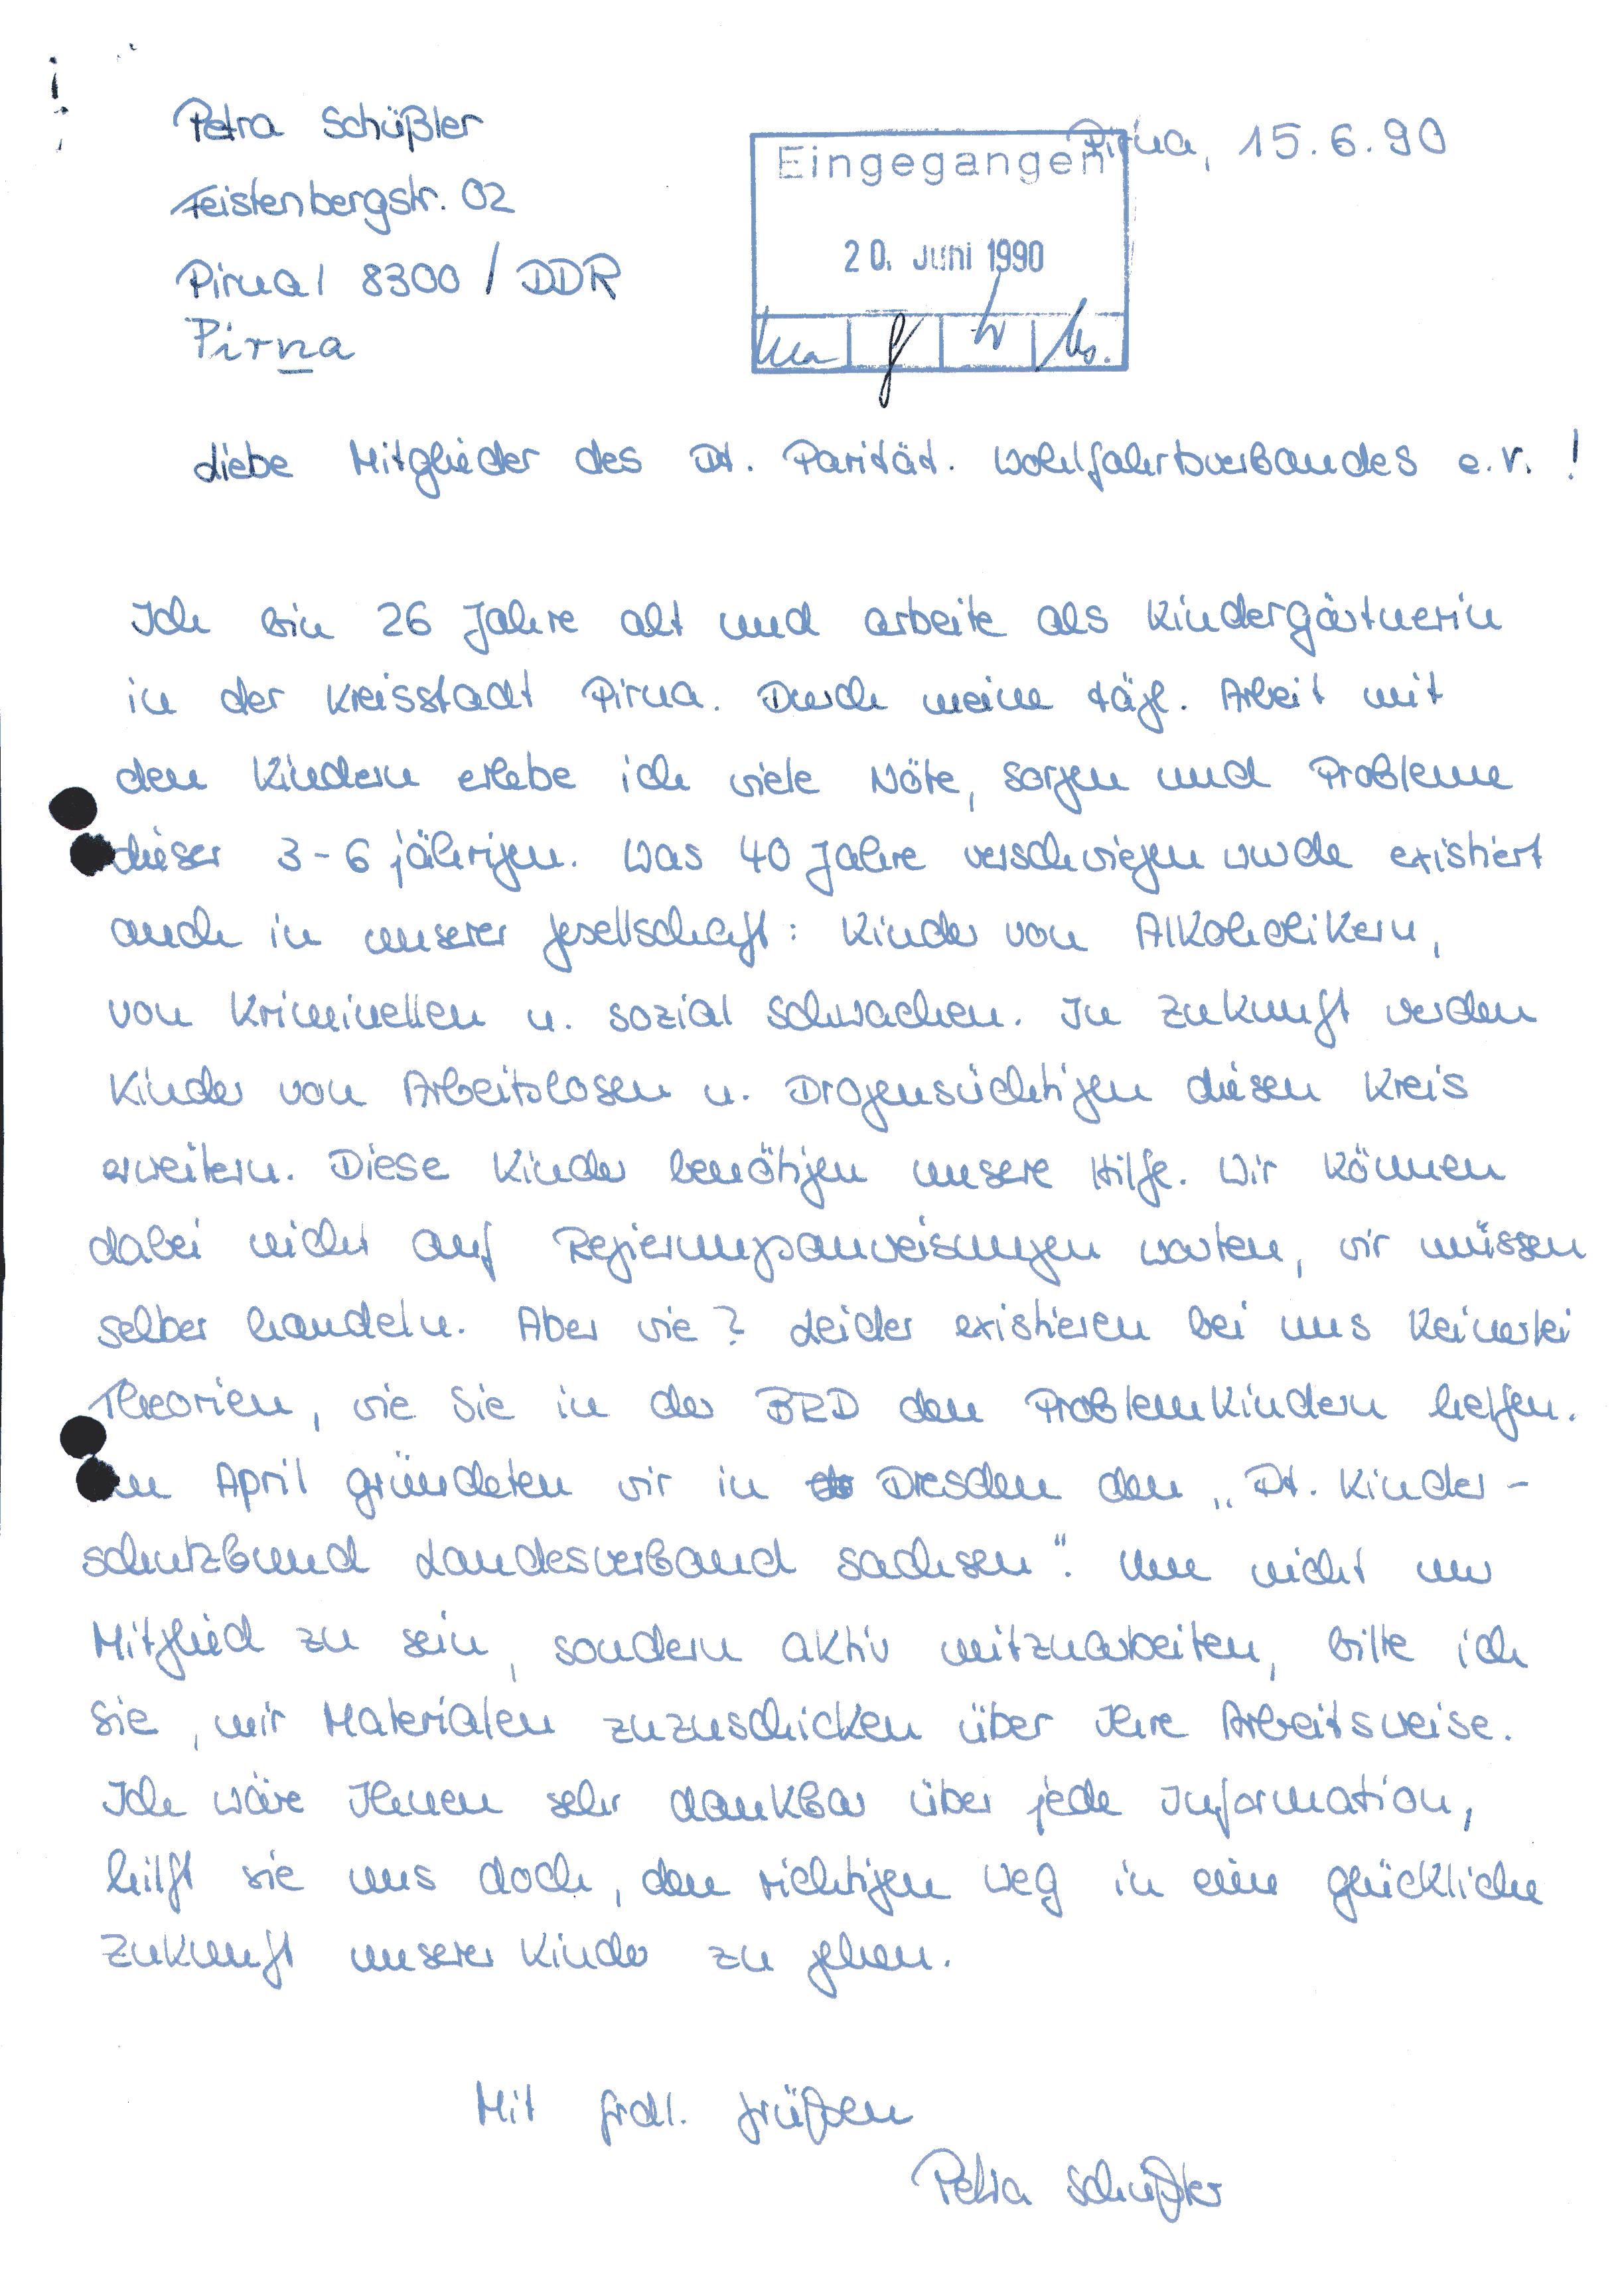 Petra Schüßler
Feistenbergstr. 02
Pirna 1 8300 / DDR
Pirna
Pirna, 15.6.90
Eingegangen
20. Juni 1990
Liebe Mitglieder des Dt. Parität. Wohlfahrtsverbandes e.V.!
Ich bin 26 Jahre alt und arbeite als Kindergärtnerin
in der Kreisstadt Pirna. Durch meine tägl. Arbeit mit
den Kindern erlebe ich viele Nöte, Sorgen und Probleme
dieser 3-6 jährigen. Was 40 Jahre verschwiegen wurde existiert
auch in unserer Gesellschaft: Kinder von Alkoholikern,
von Kriminellen u. sozial Schwachen. In Zukunft werden
Kinder von Arbeitslosen u. Drogensüchtigen diesen Kreis
erweitern. Diese Kinder benötigen unsere Hilfe. Wir können
dabei nicht auf Regierungsanweisungen warten, wir müssen
selber handeln. Aber wie? Leider existieren bei uns keinerlei
Theorien, wie Sie in der BRD den Problemkindern helfen.
Im April gründeten wir in Dresden den „Dt. Kinder-
schutzbund Landesverband Sachsen". Um nicht nur
Mitglied zu sein, sondern aktiv mitzuarbeiten, bitte ich
Sie, mir Materialen zuzuschicken über Ihre Arbeitsweise.
Ich wäre Ihnen sehr dankbar über jede Information,
hilft sie uns doch, den richtigen Weg in eine glückliche
Zukunft unserer Kinder zu gehen.
Mit frdl. Grüßen
Petra Schüßler